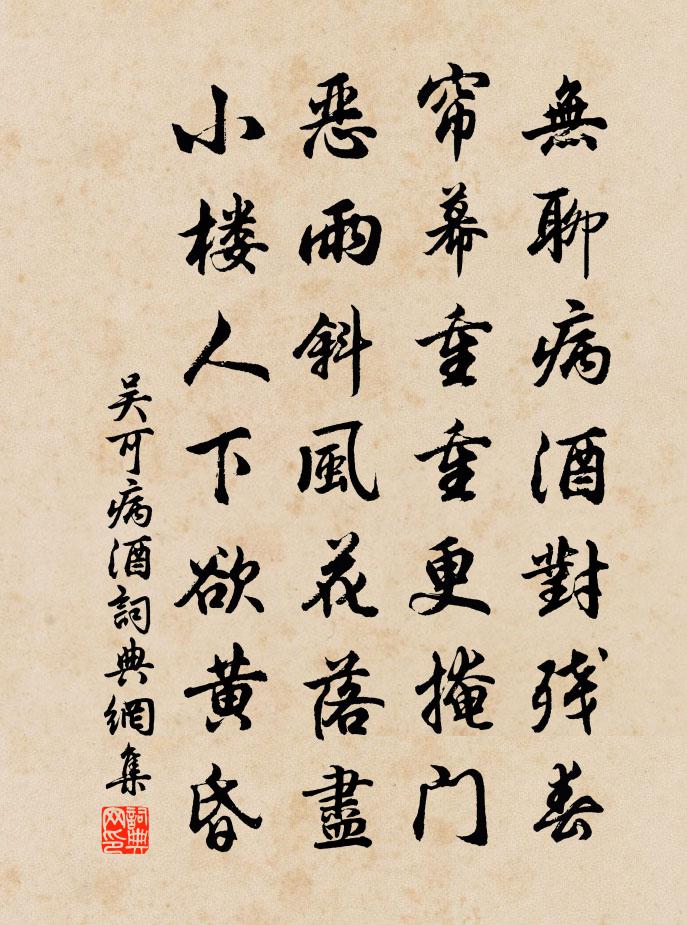 無聊病酒對残春
帘幕重重更掩门
惡雨斜風花落盡
小楼人下欲黄昏
吴可病酒詞典網集
詞典网印